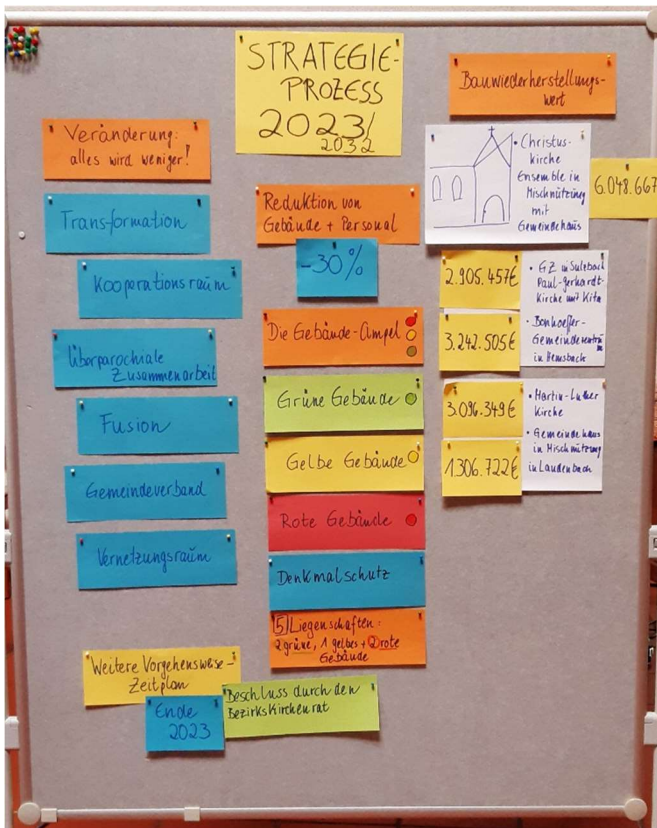 STRATEGIE-
PROZESS
2023/
2032
Veränderung:
alles wird weniger!
Transformation
Kooperationsraum
Überparochiale
Zusammenarbeit
Fusion
Gemeindeverband
Vernetzungsraum
Weitere Vorgehensweise-
Zeitplan
Ende
2023
Beschluss durch den
Bezirkskirchenrat
Reduktion von
Gebäude + Personal
-30%
Die Gebäude-Ampel
Grüne Gebäude
Gelbe Gebäude
Rote Gebäude
Denkmalschutz
5 Liegenschaften:
2 grüne, 1 gelbes + 2 rote
Gebäude
Bauwiederherstellungs-
wert
• Christus-
kirche
Ensemble in
Mischnützung
mit
Gemeindehaus
6.048.667
2.905.457€
• GZ in Sulzbach
Paul-Gerhardt-
Kirche mit Kita
3.242.505€
• Bonhoeffer-
Gemeindezentrum
in Hemsbach
3.096.349€
• Martin-Luther
Kirche
1.306.722€
• Gemeindehaus
in Mischnützung
in Laudenbach